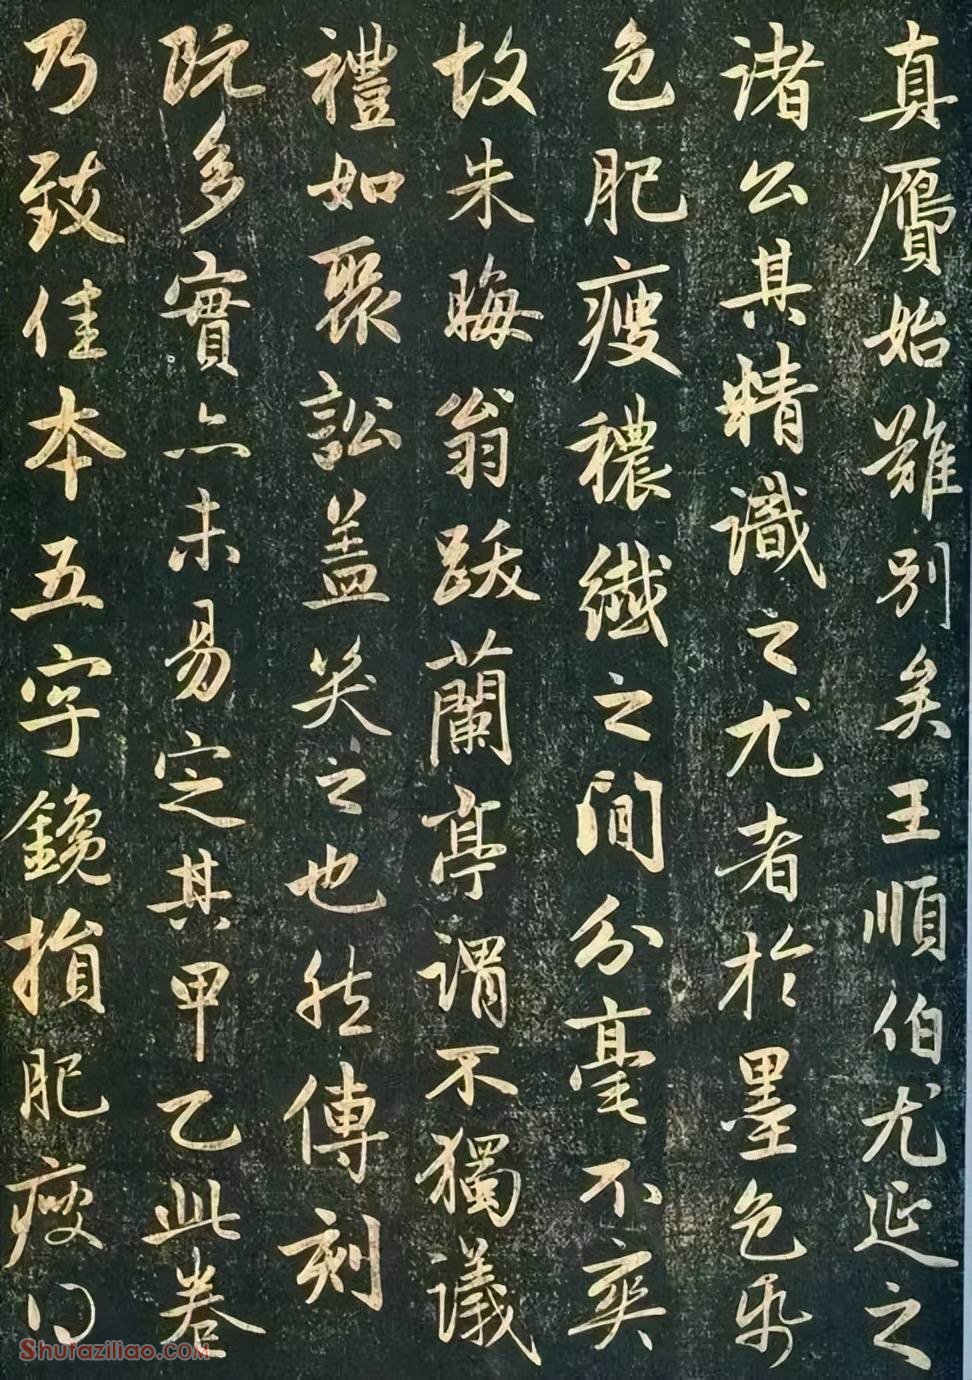 真贋始難別矣王順伯尤延之
諸公其精識之尤者於墨色紙
色肥瘦穠纖之間分毫不爽
故朱晦翁跋蘭亭謂不獨議
禮如聚訟蓋笑之也然傳刻
既多實亦未易定其甲乙此卷
乃致佳本五字鑱損肥瘦
Shufaziliao.COM